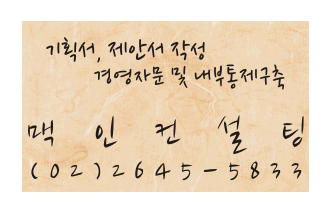 기획서, 제안서 작성
경영자문 및 내부통제구축
맥 인 컨 설 팅
(02)2645-5833